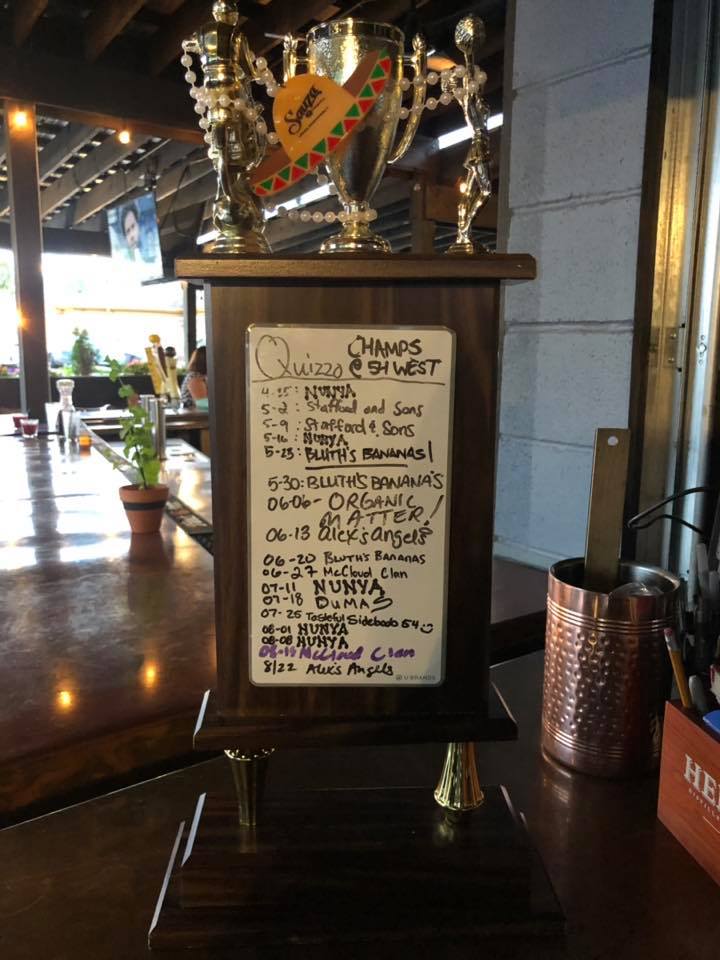 Sauza
Quizzo CHAMPS
@ 54 WEST
4-25: NUNYA
5-2: Stafford and Sons
5-9: Stafford & Sons
5-16: NUNYA
5-23: BLUTH'S BANANAS!
5-30: BLUTH'S BANANA'S
06-06- ORGANIC
MATTER!
06-13 alex's angels
06-20 BLUTH'S BANANAS
06-27 McCloud Clan
07-11 NUNYA
07-18 DUMAS
07-25 Tasteful Sideboob 54
08-01 NUNYA
08-08 NUNYA
08-15 McCloud Clan
8/22 Alex's Angels
U BRANDS
HE